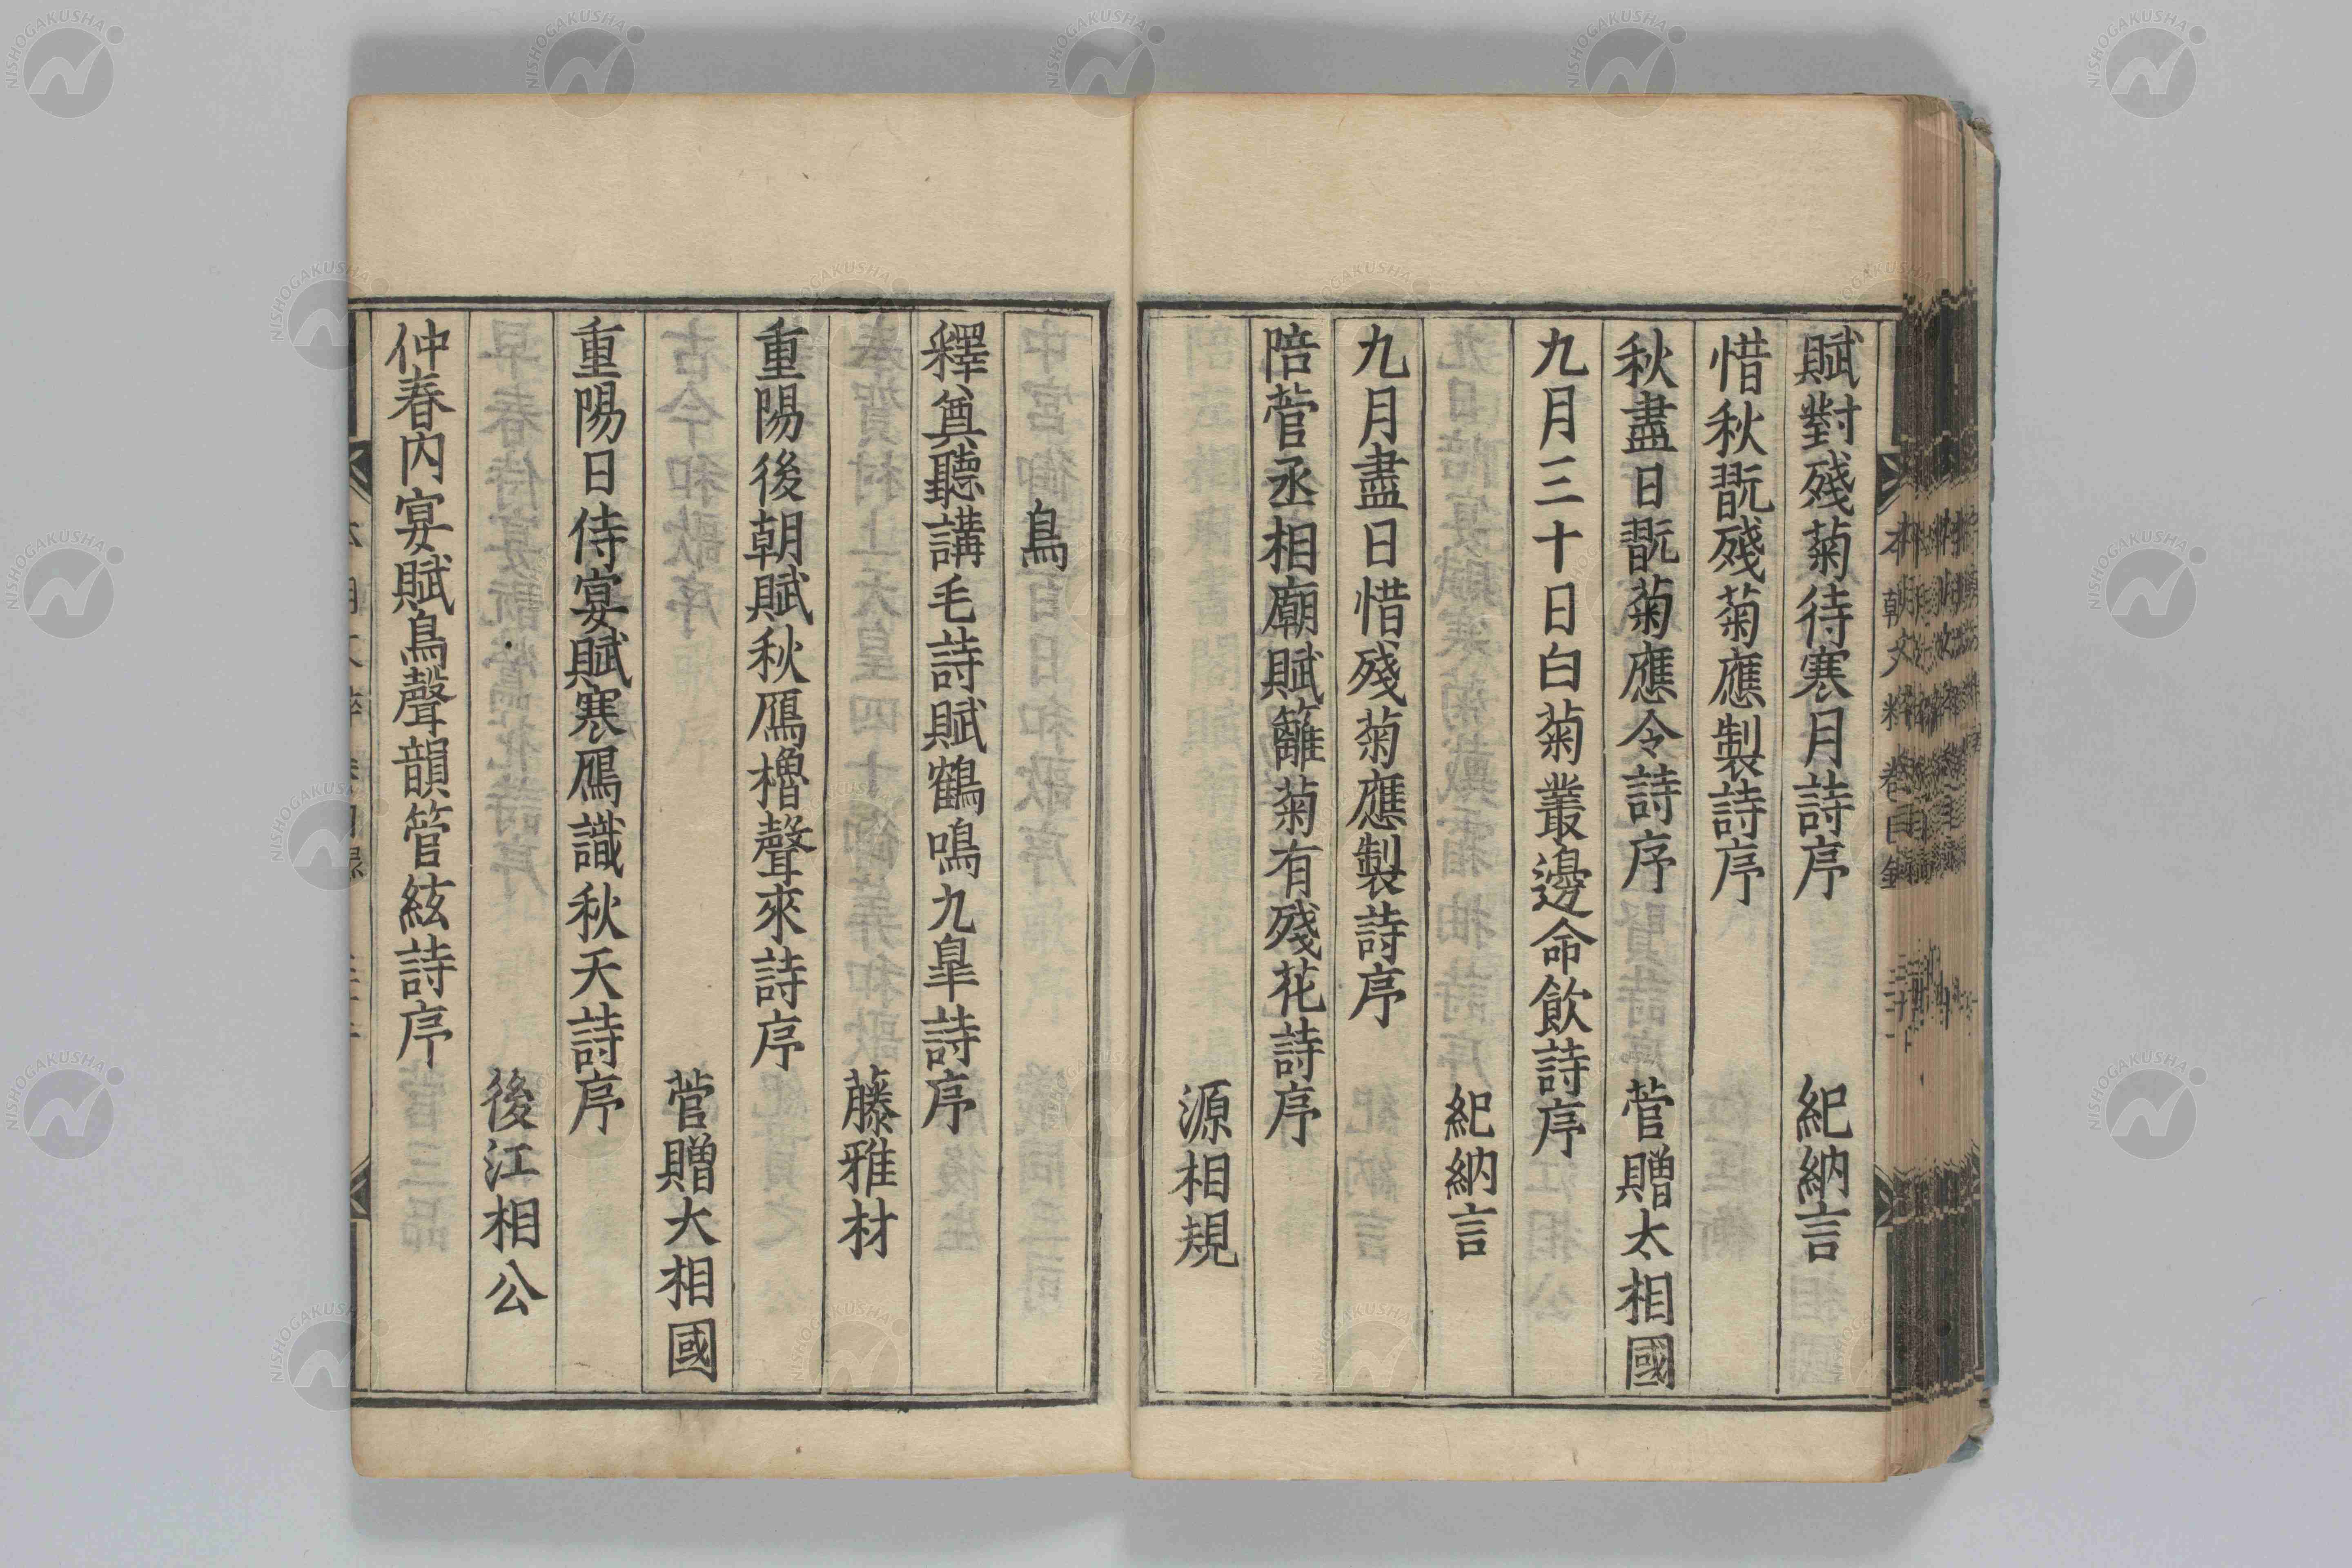 賦對殘菊待寒月詩序 紀納言
惜秋翫殘菊應製詩序
秋盡日翫菊應令詩序 菅贈太相國
九月三十日白菊叢邊命飮詩序
紀納言
九月盡日惜殘菊應製詩序
陪菅丞相廟賦籬菊有殘花詩序
源相規
鳥
釋奠聽講毛詩賦鶴鳴九皐詩序
藤雅材
重陽後朝賦秋鴈櫓聲來詩序
菅贈大相國
重陽日侍宴賦寒鴈識秋天詩序
後江相公
仲春内宴賦鳥聲韻管絃詩序
本朝文粹 卷目錄
NISHOGAKUSHA